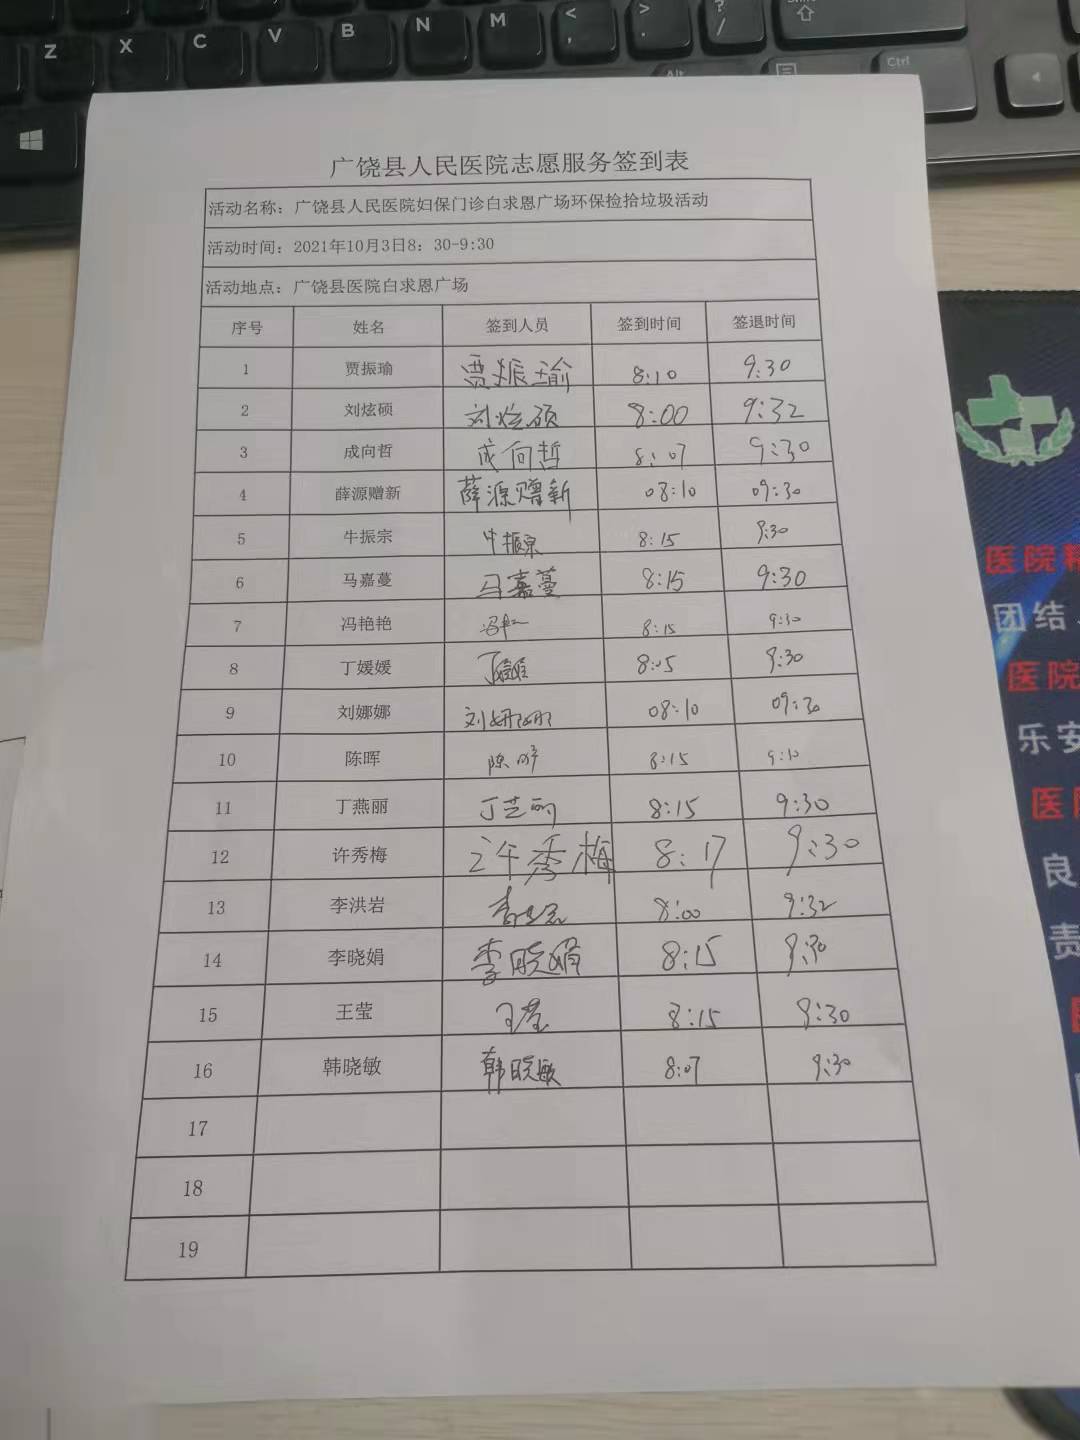 Z X C V B N M < , > . ? /
Alt Ctrl
广饶县人民医院志愿服务签到表
活动名称：广饶县人民医院妇保门诊白求恩广场环保捡拾垃圾活动
活动时间：2021年10月3日8：30-9:30
活动地点：广饶县医院白求恩广场
序号 姓名 签到人员 签到时间 签退时间
1 贾振瑜 贾振瑜 8:10 9:30
2 刘炫硕 刘炫硕 8:00 9:32
3 成向哲 成向哲 8:07 9:30
4 薛源赠新 薛源赠新 08:10 09:30
5 牛振宗 牛振宗 8:15 9:30
6 马嘉蔓 马嘉蔓 8:15 9:30
7 冯艳艳 8:15 9:30
8 丁媛媛 丁媛媛 8:05 9:30
9 刘娜娜 刘娜娜 08:10 09:30
10 陈晖 陈晖 8:15 9:10
11 丁燕丽 丁芝丽 8:15 9:30
12 许秀梅 许秀梅 8:17 9:30
13 李洪岩 8:00 9:32
14 李晓娟 李晓娟 8:15 9:30
15 王莹 王莹 8:15 9:30
16 韩晓敏 韩晓敏 8:07 9:30
17
18
19
医院精
团结
医院
乐安
医
良
责